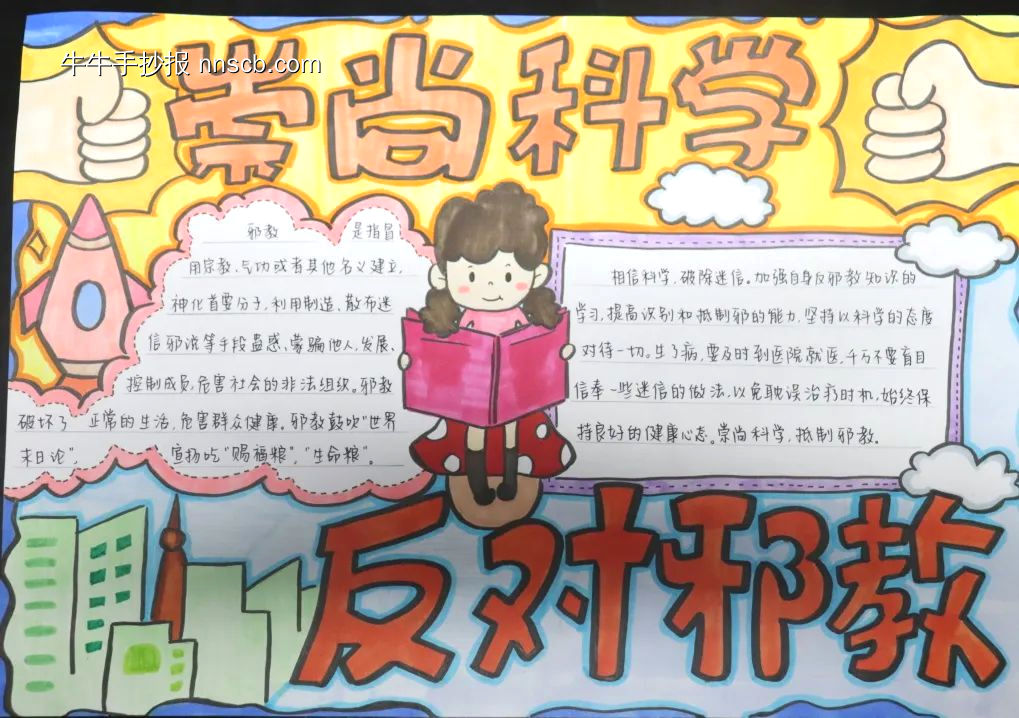 牛牛手抄报 nnscb.com
崇尚科学
邪教 是指冒
用宗教、气功或者其他名义建立,
神化首要分子,利用制造、散布迷
信邪说等手段蛊惑、蒙骗他人,发展、
控制成员,危害社会的非法组织。邪教
破坏了 正常的生活,危害群众健康。邪教鼓吹“世界
末日论”, 宣扬吃“赐福粮”,“生命粮”。
相信科学,破除迷信。加强自身反邪教知识的
学习,提高识别和抵制邪的能力,坚持以科学的态度
对待一切。生了病,要及时到医院就医,千万不要盲目
信奉一些迷信的做法,以免耽误治疗时机,始终保
持良好的健康心态。崇尚科学,抵制邪教.
反对邪教